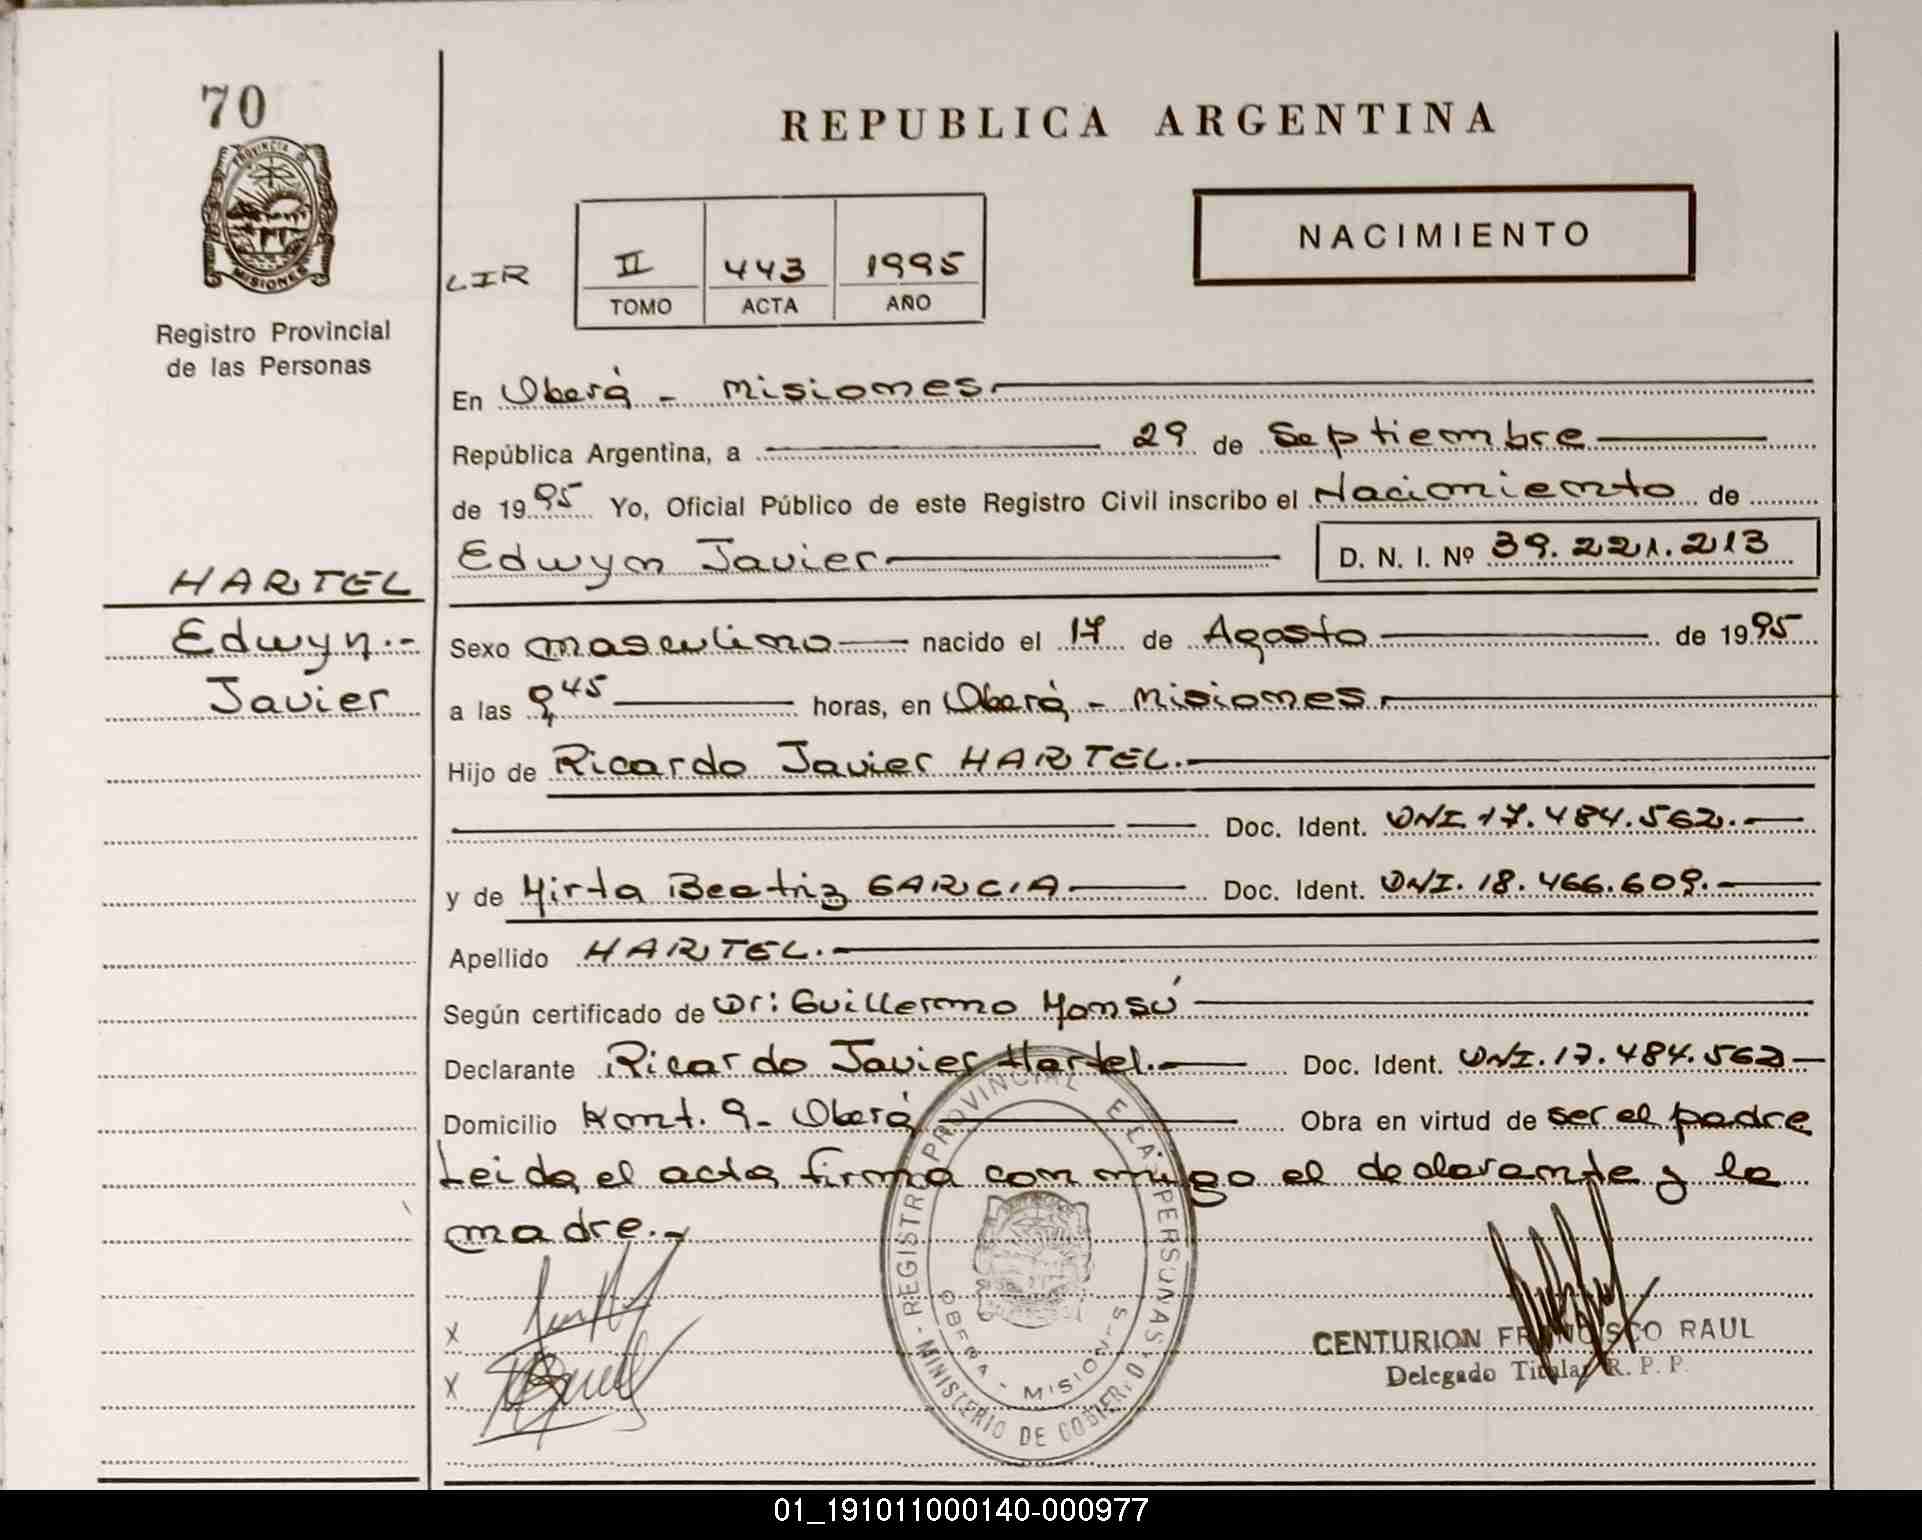 70
PROVINCIA DE
MISIONES
Registro Provincial
de las Personas
HARTEL
Edwyn.-
Javier
REPUBLICA ARGENTINA
LIR
II 443 1995
TOMO ACTA AÑO
NACIMIENTO
En Oberá - Misiones
República Argentina, a 29 de Septiembre
de 1995 Yo, Oficial Público de este Registro Civil inscribo el Nacimiento de
Edwyn Javier D. N. I. Nº 39.221.213
Sexo masculino nacido el 17 de Agosto de 1995
a las 9,45 horas, en Oberá - Misiones
Hijo de Ricardo Javier HARTEL.-
Doc. Ident. DNI.17.484.562.-
y de Mirta Beatriz GARCIA Doc. Ident. DNI.18.466.609.-
Apellido HARTEL.-
Según certificado de Dr: Guillermo Monsú
Declarante Ricardo Javier Hartel.- Doc. Ident. DNI.17.484.562-
Domicilio Kont. 9- Oberá Obra en virtud de ser el padre
Leida el acta firma conmigo el declarante y la
madre.-
x
x
REGISTRO PROVINCIAL E LAS PERSONAS
MINISTERIO DE GOBIERNO
OBERA - MISIONES
CENTURION FRANCISCO RAUL
Delegado Titular R. P. P.
01_191011000140-000977